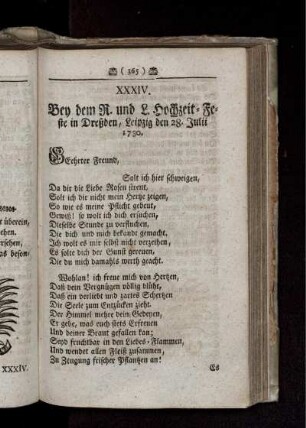 ( 265 )
XXXIV.
Bey dem R. und L. Hochzeit-Fe-
ste in Dreßden, Leipzig den 28. Julii
1730.
Geehrter Freund,
Solt ich hier schweigen,
Da dir die Liebe Rosen streut,
Solt ich dir nicht mein Hertze zeigen,
So wie es meine Pflicht gebeut,
Gewiß! so wolt ich dich ersuchen,
Dieselbe Stunde zu verfluchen,
Die dich und mich bekandt gemacht,
Ich wolt es mir selbst nicht verzeihen,
Es solte dich der Gunst gereuen,
Die du mich damahls werth geacht.
Wohlan! ich freue mich von Hertzen,
Daß dein Vergnügen völlig blüht,
Daß ein verliebt und zartes Schertzen
Die Seele zum Entzücken zieht.
Der Himmel mehre dein Gedeyen,
Er gebe, was euch stets erfreuen
Und deiner Braut gefallen kan;
Seyd fruchtbar in den Liebes-Flammen,
Und wendet allen Fleiß zusammen,
Zu Zeugung frischer Pflantzen an!
Es
überein,
ehen.
ersehen,
as beson-
XXXIV.